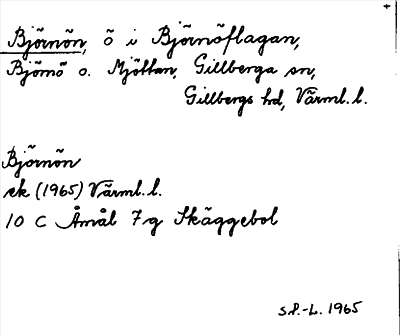 Björnön, ö i Björnöflagan,
Björnö o. Mjöttan, Gillberga sn,
Gillbergs hd, Värml. l.
Björnön
ek (1965) Värml. l.
10 C Åmål 7g Skäggebol
S.P.-L. 1965